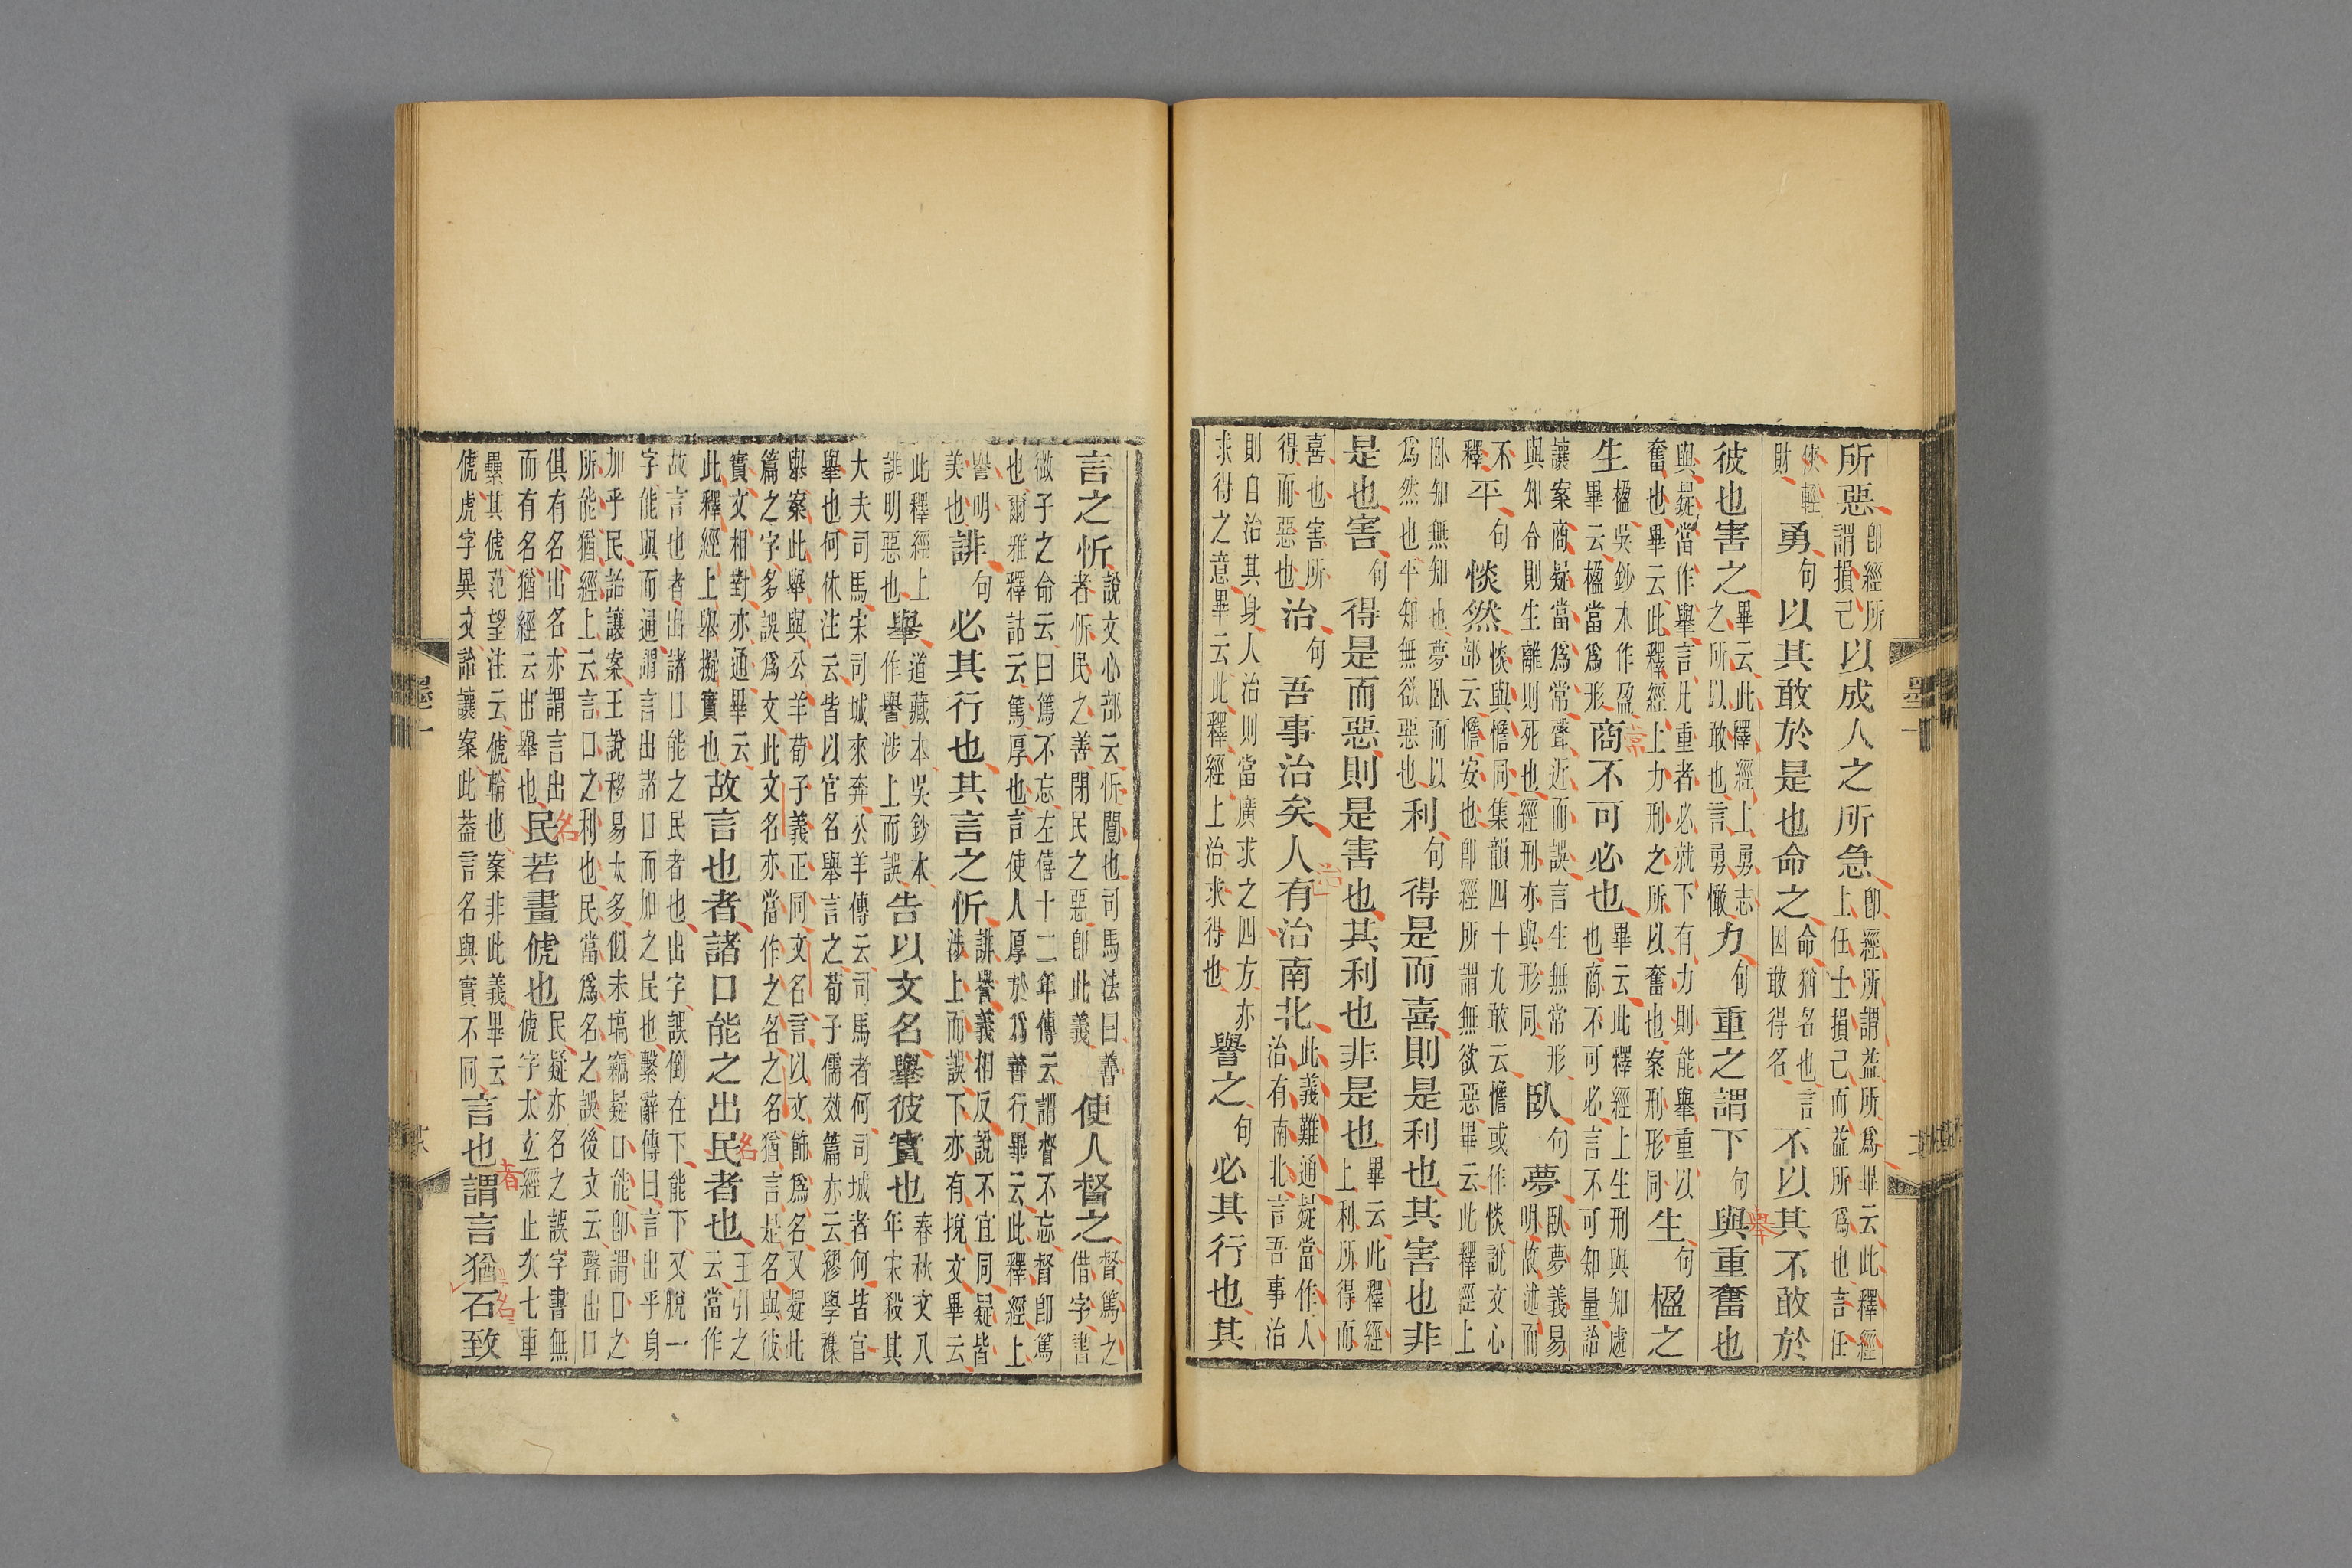 所惡即經所謂損己以成人之所急即經所謂益所爲畢云此釋經上任士損己而益所爲也言任
俠輕財勇句以其敢於是也命之命猶名也言因敢得名不以其不敢於
彼也害之畢云此釋經上勇志之所以敢也言勇慠力句重之謂下句與重奮也
舉
與疑當作舉言凡重者必就下有力則能舉重以奮也畢云此釋經上力刑之所以奮也案刑形同生句楹之
生楹吳鈔本作盈畢云楹當爲形商不可必也畢云此釋經上生刑與知處也商不可必言不可知量詒
常
讓案商疑當爲常聲近而誤言生無常形與知合則生離則死也經刑亦與形同臥句夢臥夢義易明故述而
不釋平句惔然惔與憺同集韻四十九敢云憺或作惔說文心部云憺安也即經所謂無欲惡畢云此釋經上
臥知無知也夢臥而以爲然也平知無欲惡也利句得是而喜則是利也其害也非
是也害句得是而惡則是害也其利也非是也畢云此釋經上利所得而
喜也害所得而惡也治句吾事治矣人有治南北此義難通疑當作人治有南北言吾事治
則自治其身人治則當廣求之四方亦求得之意畢云此釋經上治求得也譽之句必其行也其
言之忻說文心部云忻闓也司馬法曰善者忻民之善閉民之惡即此義使人督之督篤之借字書
微子之命云曰篤不忘左僖十二年傳云謂督不忘督即篤也爾雅釋詁云篤厚也言使人厚於爲善行畢云此釋經上
譽明美也誹句必其行也其言之忻誹譽義相反說不宜同疑皆涉上而誤下亦有捝文畢云
此釋經上誹明惡也舉道藏本吳鈔本作譽涉上而誤告以文名舉彼實也春秋文八年宋殺其
大夫司馬宋司城來奔公羊傳云司馬者何司城者何皆官舉也何休注云皆以官名舉言之荀子儒效篇亦云繆學襍
舉案此舉與公羊荀子義正同文名言以文飾爲名又疑此篇之字多誤爲文此文名亦當作之名之名猶言是名與彼
實文相對亦通畢云此釋經上舉擬實也故言也者諸口能之出民者也王引之云當作
名
故言也者出諸口能之民者也出字誤倒在下能下又脫一字能與而通謂言出諸口而加之民也繫辭傳曰言出乎身
加乎民詒讓案王說移易太多似未塙竊疑口能即謂口之所能猶經上云言口之利也民當爲名之誤後文云聲出口
俱有名出名亦謂言出而有名猶經云出舉也民若畫俿也民疑亦名之誤字書無俿字太玄經止次七車
名
纍其俿范望注云俿輪也案非此義畢云俿虎字異文詒讓案此葢言名與實不同言也謂言猶石致
者
名